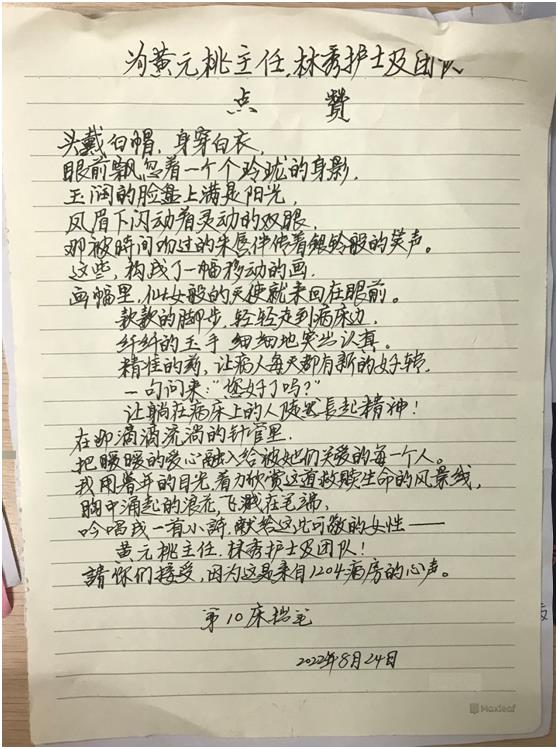 为黄元桃主任.林秀护士及团队
点 赞
头戴白帽，身穿白衣，
眼前飘忽着一个个玲珑的身影，
玉润的脸盘上满是阳光，
凤眉下闪动着灵动的双眼，
那被时间吻过的朱唇伴传着银铃般的笑声。
这些，构成了一幅移动的画，
画幅里，仙女般的天使就来回在眼前。
款款的脚步，轻轻走到病床边，
纤纤的玉手 细细地突出认真。
精准的药，让病人每天都有新的好转，
一句问来："您好了吗？"
让躺在病床上的人陡然長起精神！
在那滴滴流淌的针管里，
把暖暖的爱心融入给被她们关爱的每一个人。
我用昏花的目光，着力欣赏这道救赎生命的风景线，
胸中涌起的浪花，飞溅在笔端，
吟唱成一首小詩，献给这些可敬的女性——
黄元桃主任.林秀护士及团队！
請你们接受，因为这是来自1204病房的心声。
第10床拙笔
2022年8月24日
Maxleaf